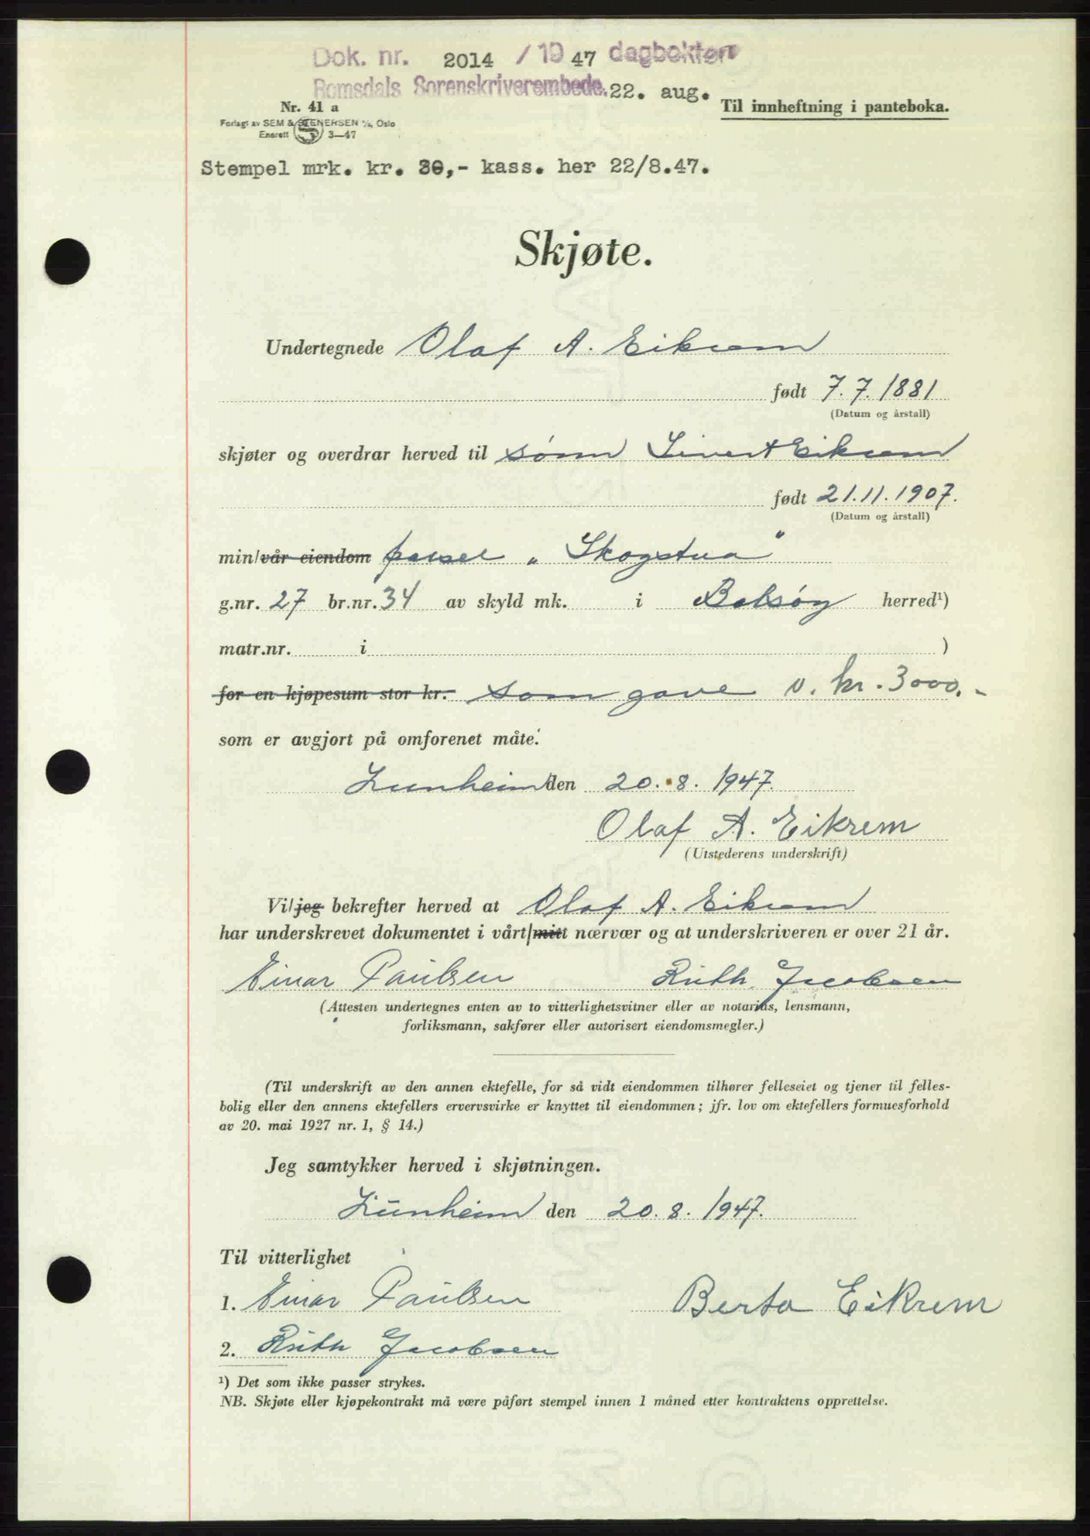 Dok. nr. 2014 / 1947 dagbokten
Romsdals Sorenskriverembede. 22. aug.
Nr. 41 a
Til innheftning i panteboka.
Forlagt av SEM & STENERSEN A/S, Oslo
Enerett 3—47
Stempel mrk. kr. 30,- kass. her 22/8.47.
Skjøte.
Undertegnede Olaf A. Eikrem
født 7.7.1881
(Datum og årstall)
skjøter og overdrar herved til sønn Sivert Eikrem
født 21.11.1907.
(Datum og årstall)
min/vår eiendom parsel „ Skogstua "
g.nr. 27 br.nr. 34 av skyld mk. i Bolsøy herred¹)
matr.nr. i )
for en kjøpesum stor kr. som gave v. kr. 3000.-
som er avgjort på omforenet måte.
Lunheim den 20.8.1947.
Olaf A. Eikrem
(Utstederens underskrift)
Vi/jeg bekrefter herved at Olaf A. Eikrem
har underskrevet dokumentet i vårt/mitt nærvær og at underskriveren er over 21 år.
Einar Paulsen Ruth Jacobsen
(Attesten undertegnes enten av to vitterlighetsvitner eller av notarius, lensmann,
forliksmann, sakfører eller autorisert eiendomsmegler.)
(Til underskrift av den annen ektefelle, for så vidt eiendommen tilhører felleseiet og tjener til felles-
bolig eller den annens ektefellers ervervsvirke er knyttet til eiendommen; jfr. lov om ektefellers formuesforhold
av 20. mai 1927 nr. 1, § 14.)
Jeg samtykker herved i skjøtningen.
Lunheim den 20.8.1947.
Til vitterlighet
1. Einar Paulsen Berta Eikrem
2. Ruth Jacobsen
¹) Det som ikke passer strykes.
NB. Skjøte eller kjøpekontrakt må være påført stempel innen 1 måned etter kontraktens opprettelse.